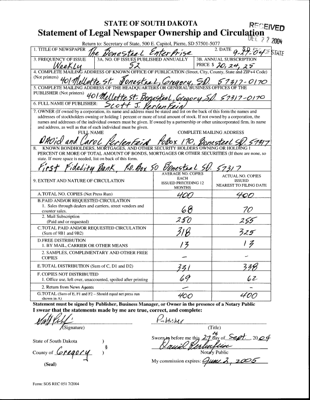 STATE OF SOUTH DAKOTA
Statement of Legal Newspaper Ownership and Circulation
RECEIVED
Return to: Secretary of State, 500 E. Capitol, Pierre, SD 57501-5077
1. TITLE OF NEWSPAPER The Bonesteel Enterprise
2. DATE 9-27-04
3. FREQUENCY OF ISSUE Weekly
3A. NO. OF ISSUES PUBLISHED ANNUALLY 52
3B. ANNUAL SUBSCRIPTION PRICE $ 20, 24, 25
4. COMPLETE MAILING ADDRESS OF KNOWN OFFICE OF PUBLICATION (Street, City, County, State and ZIP+4 Code) (Not printers)
401 Mellette St. Bonesteel, Gregory, SD. 57317-0170
5. COMPLETE MAILING ADDRESS OF THE HEADQUARTERS OR GENERAL BUSINESS OFFICES OF THE PUBLISHER (Not printer)
401 Mellette St. Bonesteel, Gregory, SD 57317-0170
6. FULL NAME OF PUBLISHER:
7. OWNER (If owned by a corporation, its name and address must be stated and list on the back of this form the names and addresses of stockholders owning or holding 1 percent or more of total amount of stock. If not owned by a corporation, the names and addresses of the individual owners must be given. If owned by a partnership or other unincorporated firm, its name and address, as well as that of each individual must be given.
FULL NAME
COMPLETE MAILING ADDRESS
David and Carol PoBox 170 Bonesteel SD. 57317
8. KNOWN BONDHOLDERS, MORTGAGES, AND OTHER SECURITY HOLDERS OWNING OR HOLDING 1 PERCENT OR MORE OF TOTAL AMOUNT OF BONDS, MORTGAGES OR OTHER SECURITIES (If there are none, so state. If more space is needed, list on back of this form.
First Fidelity Bank, Po.Box 50 Bonesteel SD. 57317
9. EXTENT AND NATURE OF CIRCULATION
AVERAGE NO. COPIES EACH ISSUED PRECEDING 12 MONTHS
ACTUAL NO. COPIES ISSUED NEAREST TO FILING DATE
A. TOTAL NO. COPIES (Net Press Run) 400 400
B. PAID AND/OR REQUESTED CIRCULATION
1. Sales through dealers and carriers, street vendors and counter sales. 68 70
2. Mail Subscription (Paid and or requested) 250 255
C. TOTAL PAID AND/OR REQUESTED CIRCULATION (Sum of 9B1 and 9B2) 318 325
D. FREE DISTRIBUTION
1. BY MAIL, CARRIER OR OTHER MEANS 13 13
2. SAMPLES, COMPLIMENTARY AND OTHER FREE COPIES – –
E. TOTAL DISTRIBUTION (Sum of C, D1 and D2) 331 338
F. COPIES NOT DISTRIBUTED
1. Office use, left over, unaccounted, spoiled after printing 69 62
2. Return from News Agents – –
G. TOTAL (Sum of E, F1 and F2 - Should equal net press run shown in A) 400 400
Statement must be signed by Publisher, Business Manager, or Owner in the presence of a Notary Public
I swear that the statements made by me are true, correct, and complete:
(Signature)
Publisher
(Title)
State of South Dakota )
County of Gregory )
(Seal)
Sworn to before me this 27 day of Sept 2004
Notary Public
My commission expires: June 2, 2005